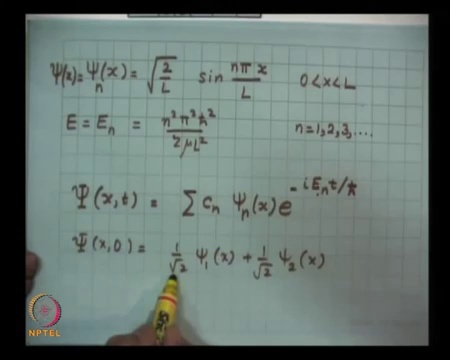 Ψ(x) = ψₙ(x) = √(2/L) sin nπx/L 0<x<L
E = Eₙ = n²π²ħ²/2μL² n=1,2,3,....
Ψ(x,t) = Σ cₙ ψₙ(x) e^(-iEₙt/ħ)
Ψ(x,0) = 1/√2 ψ₁(x) + 1/√2 ψ₂(x)
NPTEL